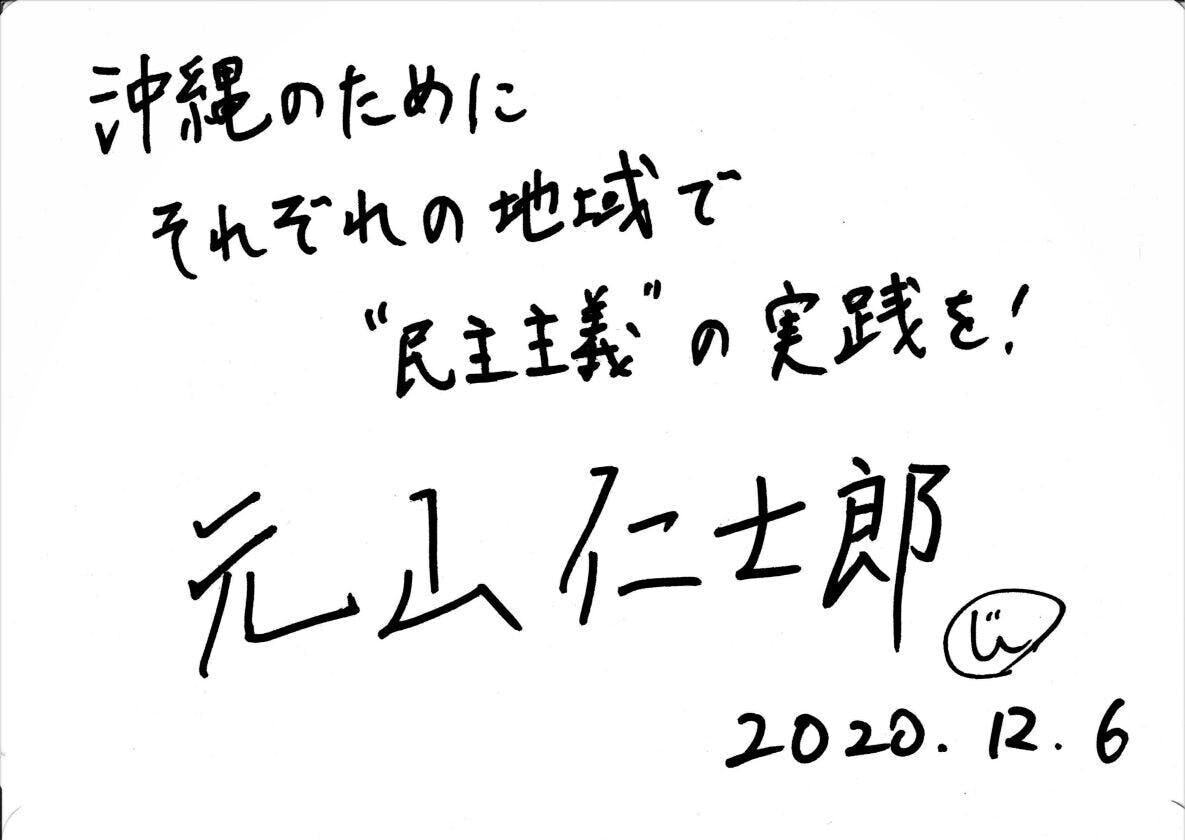 沖縄のために
それぞれの地域で
“民主主義”の実践を!
元山仁士郎
じん
2020.12.6